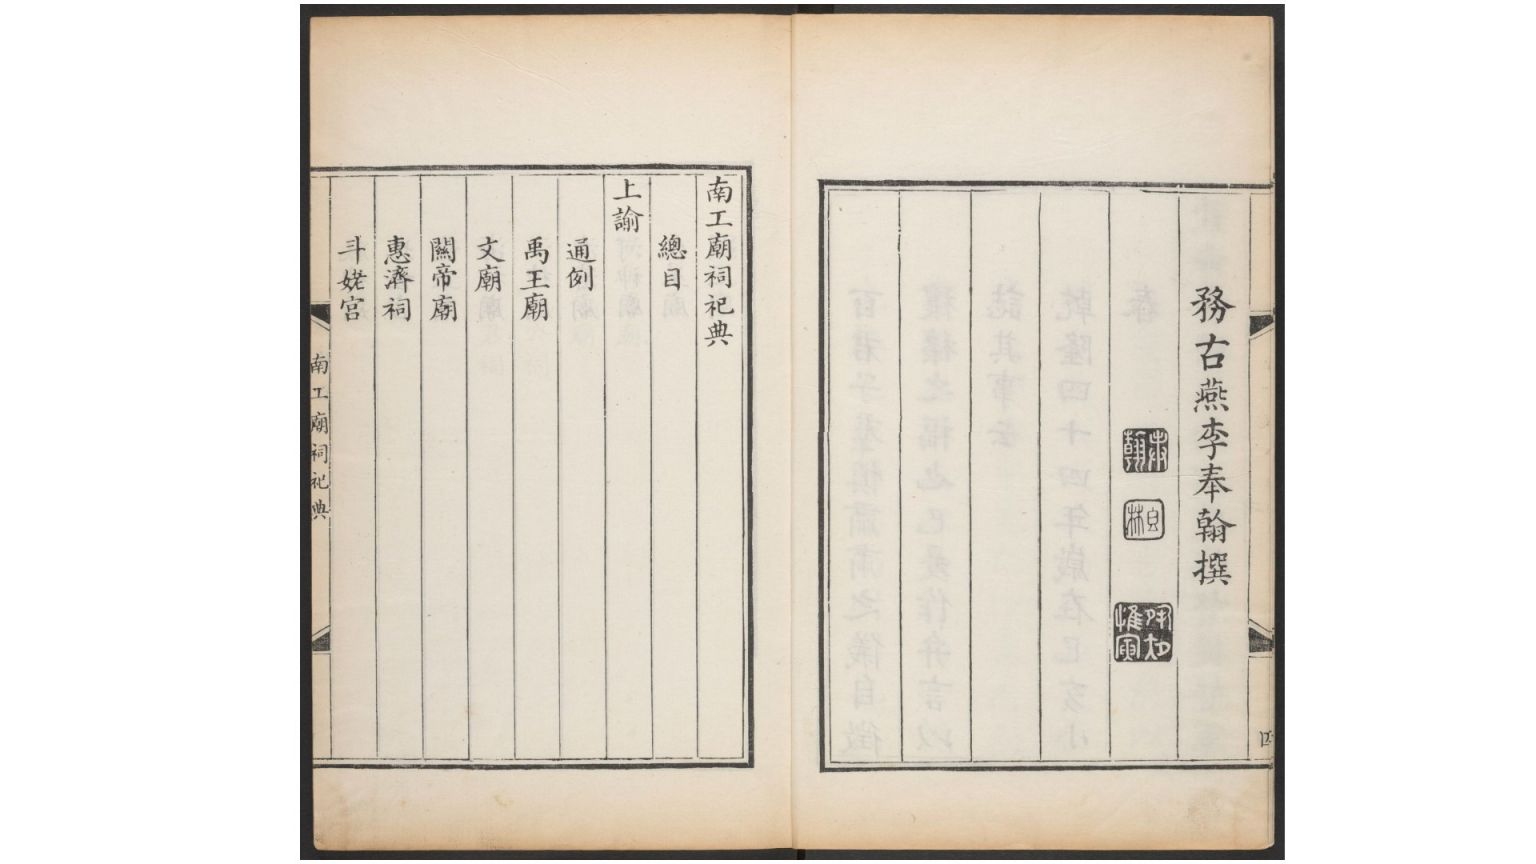 務古燕李奉翰撰
四
南工廟祠祀典
總目
上諭
通例
禹王廟
文廟
關帝廟
惠濟祠
斗姥宮
南工廟祠祀典